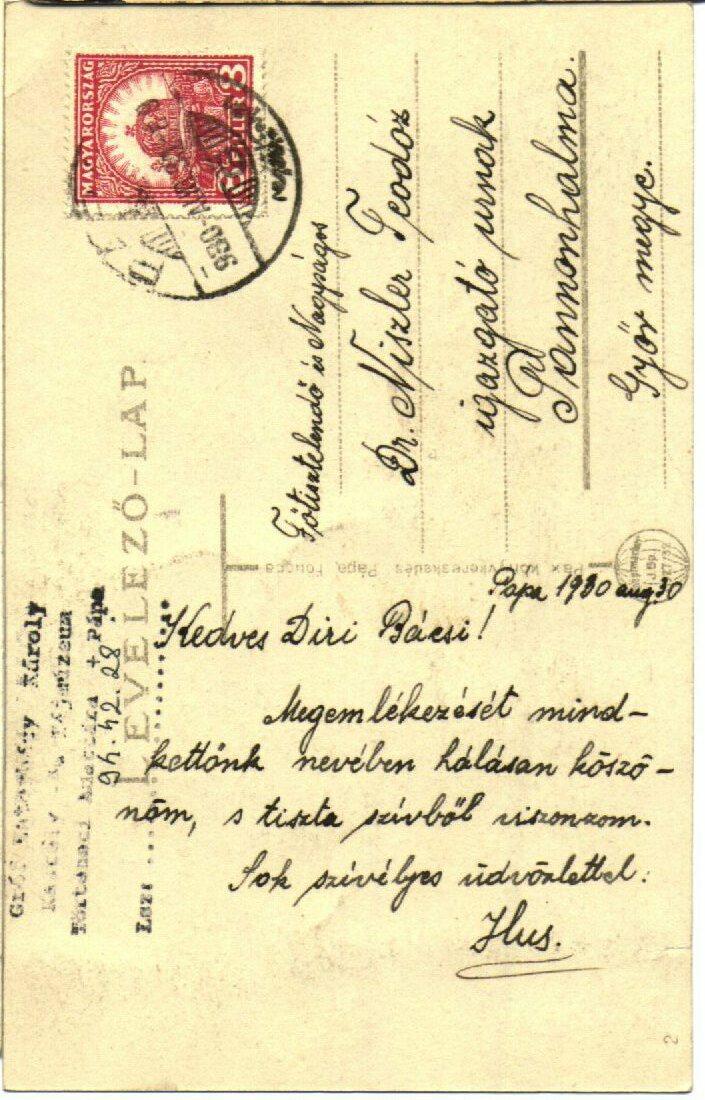 MAGYARORSZÁG
8
LEVELEZŐ-LAP
Főtisztelendő és Nagyságos
Dr. Niszler Teodóz
igazgató urnak
Pannonhalma.
Győr megye.
Pax könyvkereskedés Pápa, Főucca
Pápa 1930 aug. 30
Kedves Diri Bácsi!
Megemlékezését mind-
kettőnk nevében hálásan köszö-
nöm, s tiszta szívből viszonzom.
Sok szívélyes üdvözlettel:
Ilus.
Gróf Esterházy Károly
Történeti Adattára + Pápa
Lsz: 94.42.28
2